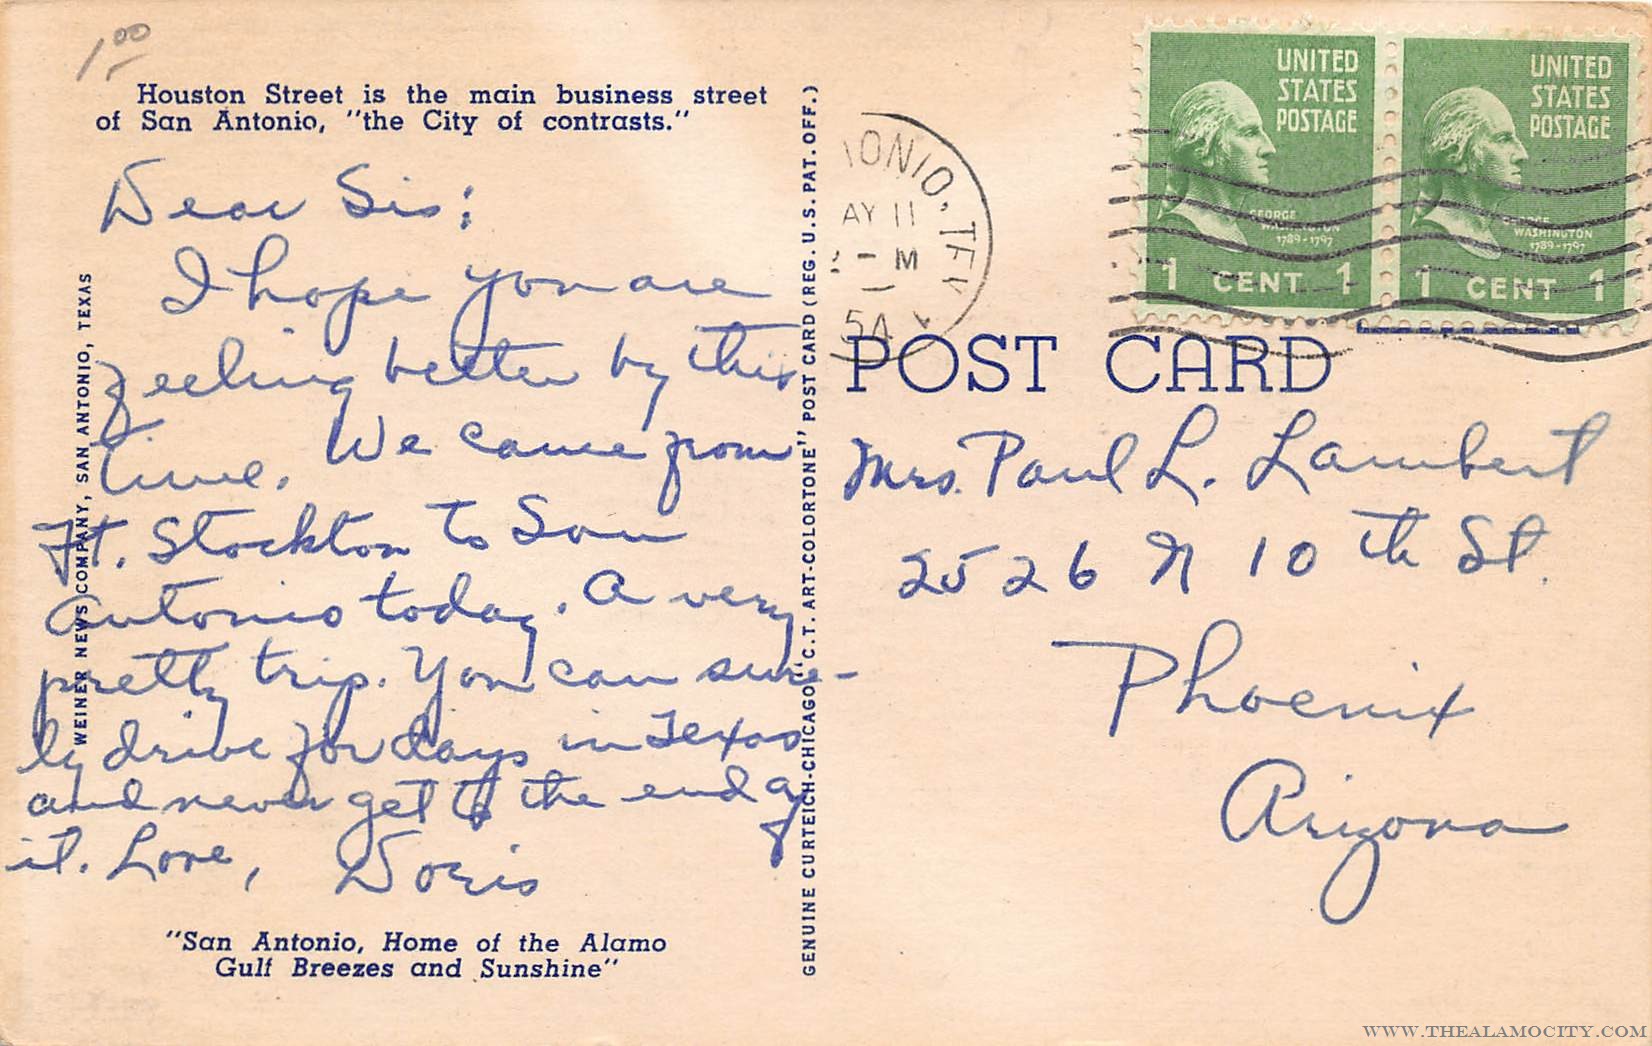 1.00
Houston Street is the main business street
of San Antonio, "the City of contrasts."
Dear Sis:
I hope you are
feeling better by this
time. We came from
Ft. Stockton to San
Antonio today. A very
pretty trip. You can sure-
ly drive for days in Texas
and never get to the end of
it. Love, Doris
"San Antonio, Home of the Alamo
Gulf Breezes and Sunshine"
WEINER NEWS COMPANY, SAN ANTONIO, TEXAS
GENUINE CURTEICH-CHICAGO "C.T. ART-COLORTONE" POST CARD (REG. U.S. PAT. OFF.)
ONIO, TEX
AY 11
- M
54
UNITED
STATES
POSTAGE
GEORGE
WASHINGTON
1789-1797
1 CENT 1
UNITED
STATES
POSTAGE
GEORGE
WASHINGTON
1789-1797
1 CENT 1
POST CARD
Mrs. Paul L. Lambert
2526 N 10th St.
Phoenix
Arizona
WWW.THEALAMOCITY.COM